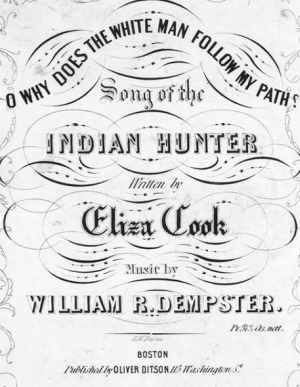 O WHY DOES THE WHITE MAN FOLLOW MY PATH
Song of the
INDIAN HUNTER
Written by
Eliza Cook
Music by
WILLIAM R. DEMPSTER.
nett.
BOSTON
Published by OLIVER DITSON 115 Washington St.